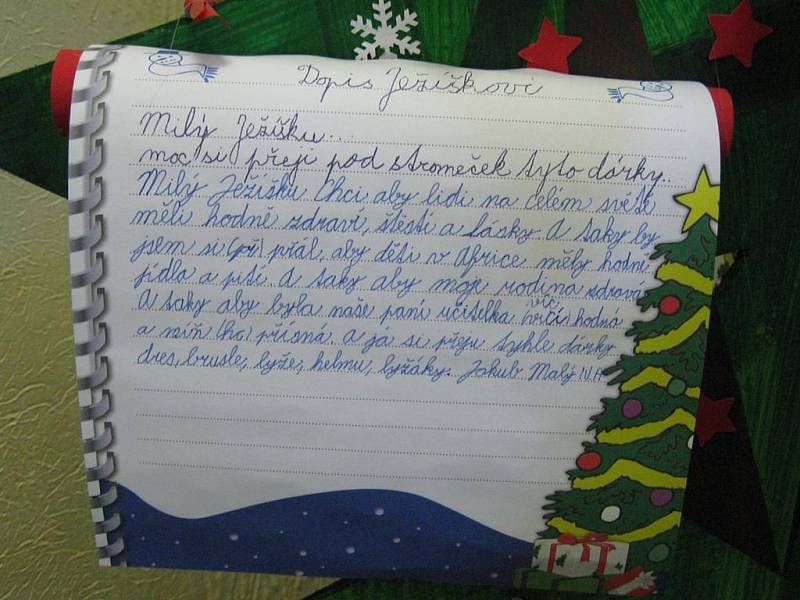 Dopis Ježíškovi
Milý Ježíšku...
moc si přeji pod stromeček tyto dárky.
Milý Ježíšku Chci aby lidi na celém světě
měli hodně zdraví, štěstí a lásky. A taky by
jsem si (při) přál, aby děti v Africe měly hodně
jídla a pití. A taky aby moje rodina zdravá.
A taky aby byla naše paní učitelka (vrčí) víc hodná
a míň (ho) přísná. a já si přeju tyhle dárky
dres, brusle, lyže, helmu, lyžáky. Jakub Malý IV.A